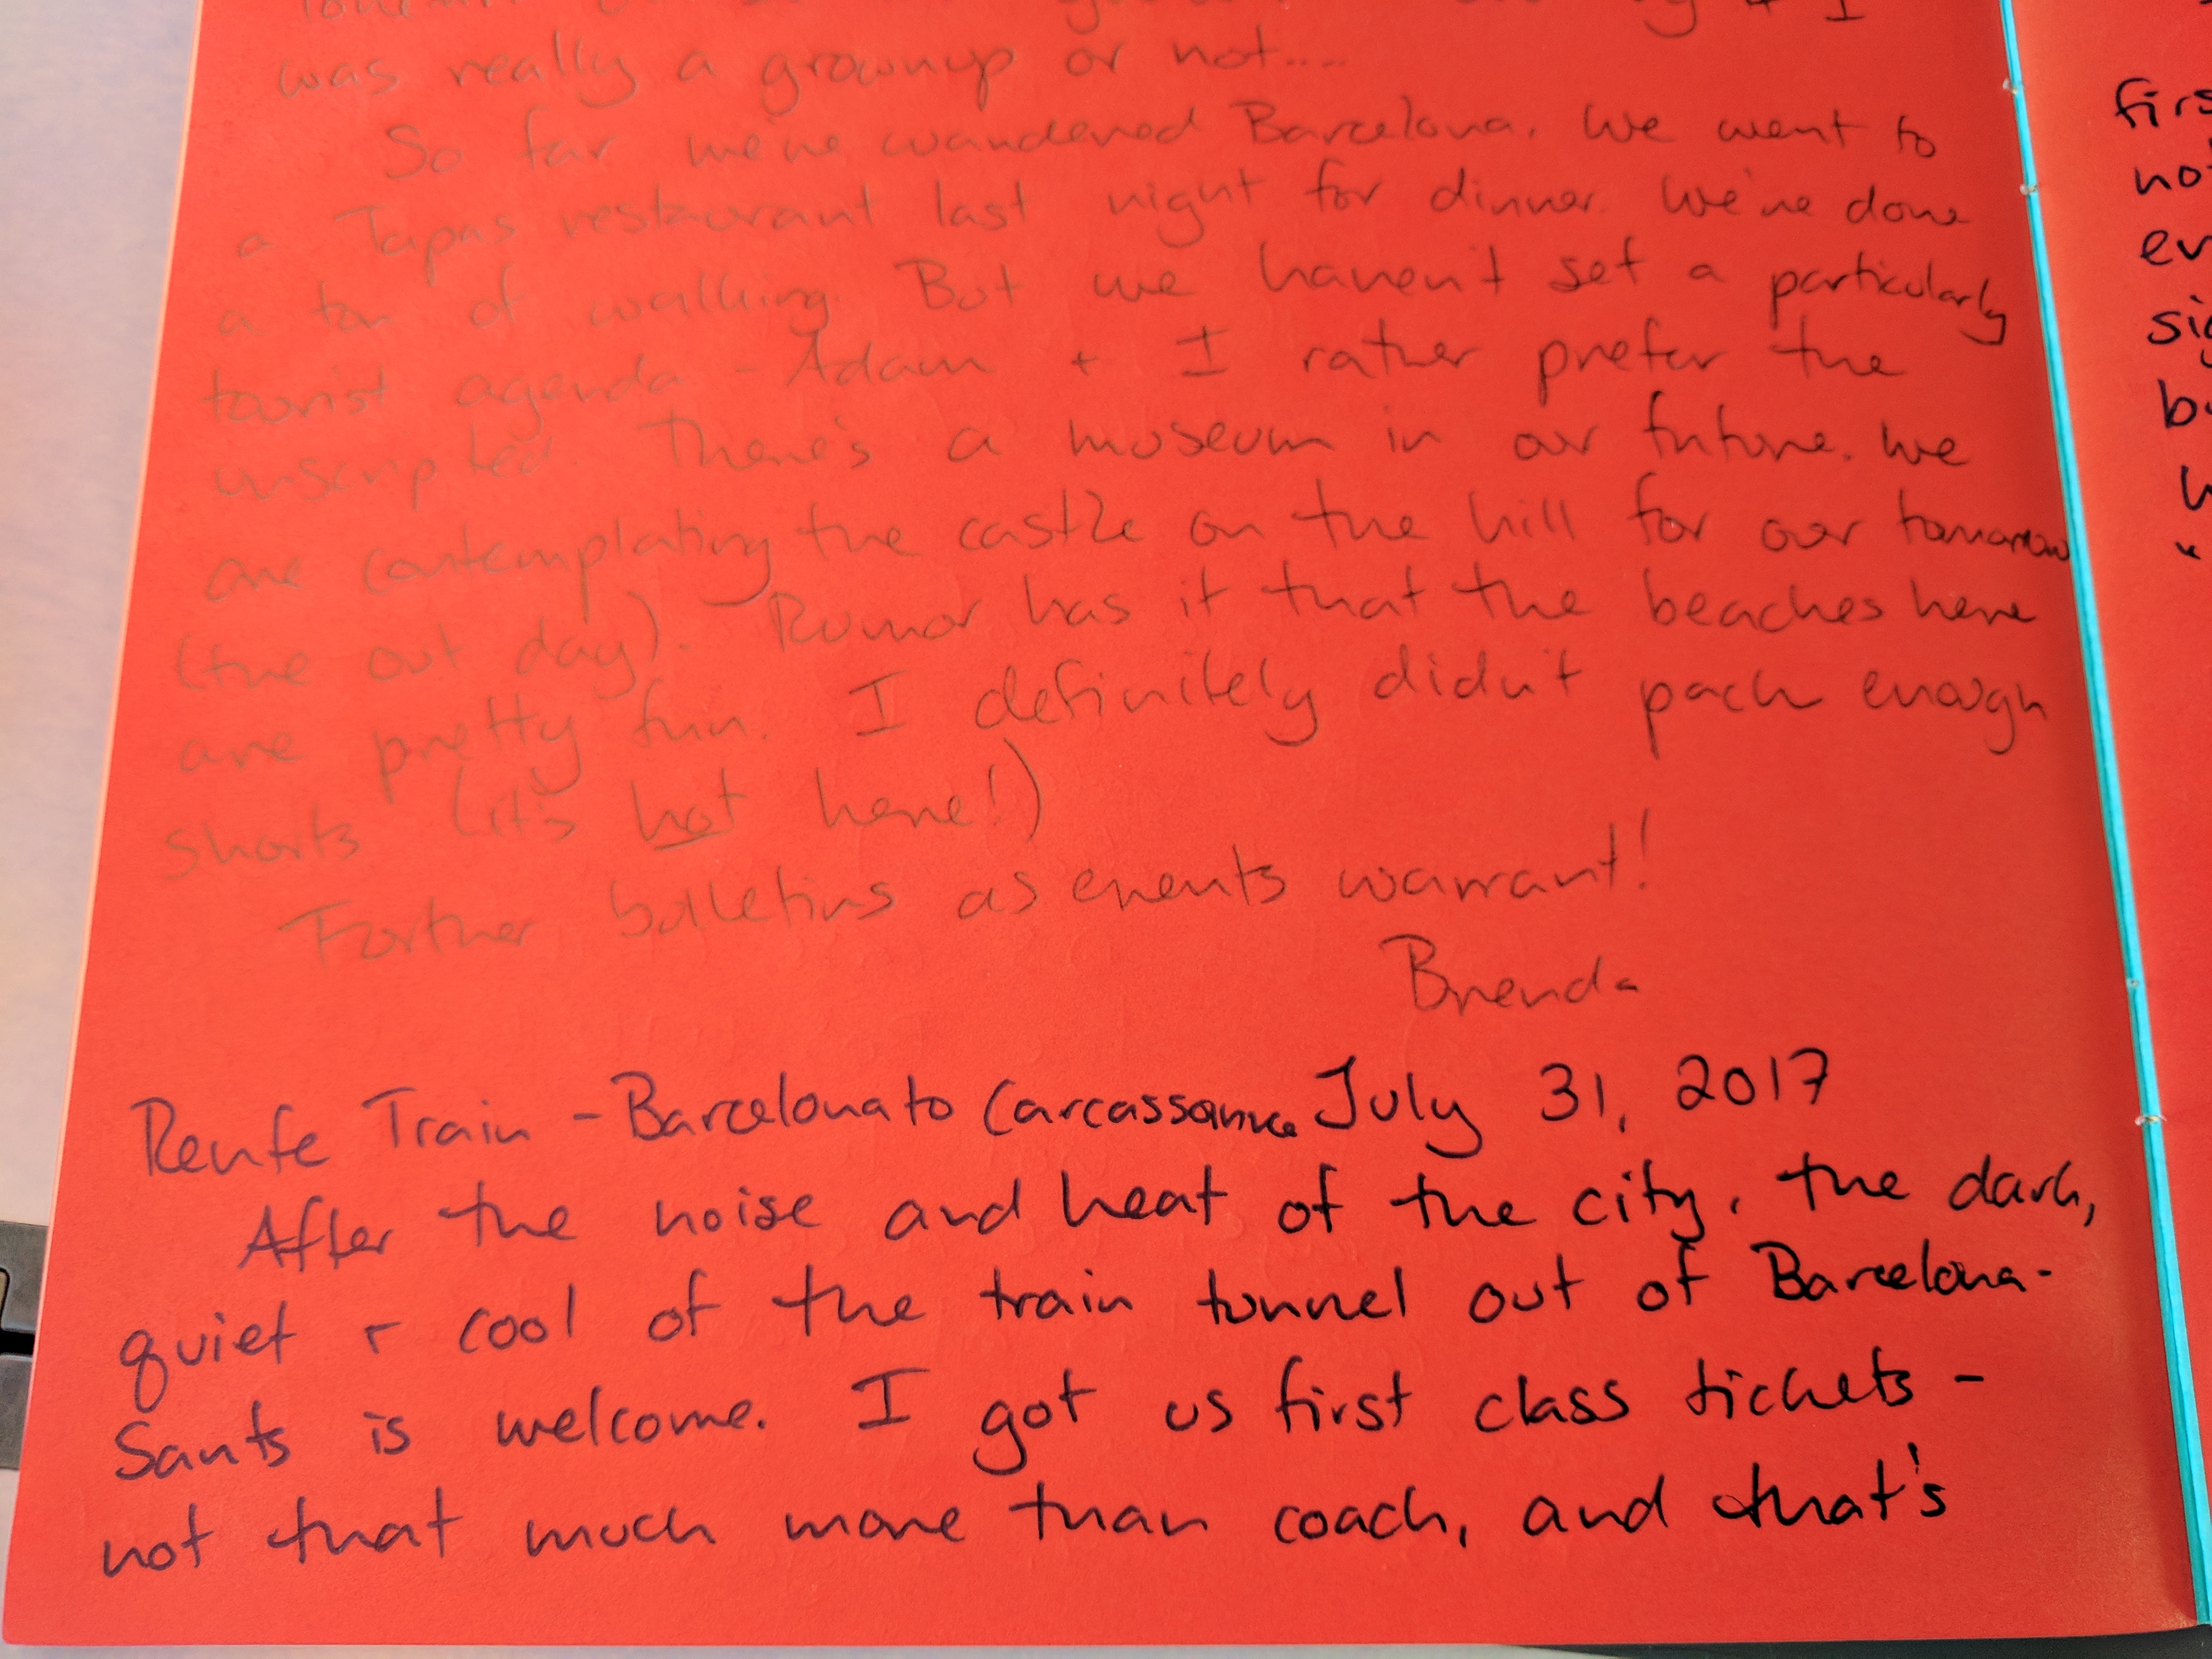 & I
was really a grownup or not....
So far we've wandered Barcelona. We went to
a Tapas restaurant last night for dinner. We've done
a ton of walking. But we haven't set a particularly
tourist agenda - Adam + I rather prefer the
unscripted. There's a museum in our future. We
are contemplating the castle on the hill for our tomorrow
(the out day). Rumor has it that the beaches here
are pretty fun. I definitely didn't pack enough
shorts (it's hot here!)
Further bulletins as events warrant!
Brenda
Renfe Train - Barcelona to Carcassonne July 31, 2017
After the noise and heat of the city, the dark,
quiet + cool of the train tunnel out of Barcelona-
Sants is welcome. I got us first class tickets -
not that much more than coach, and that's